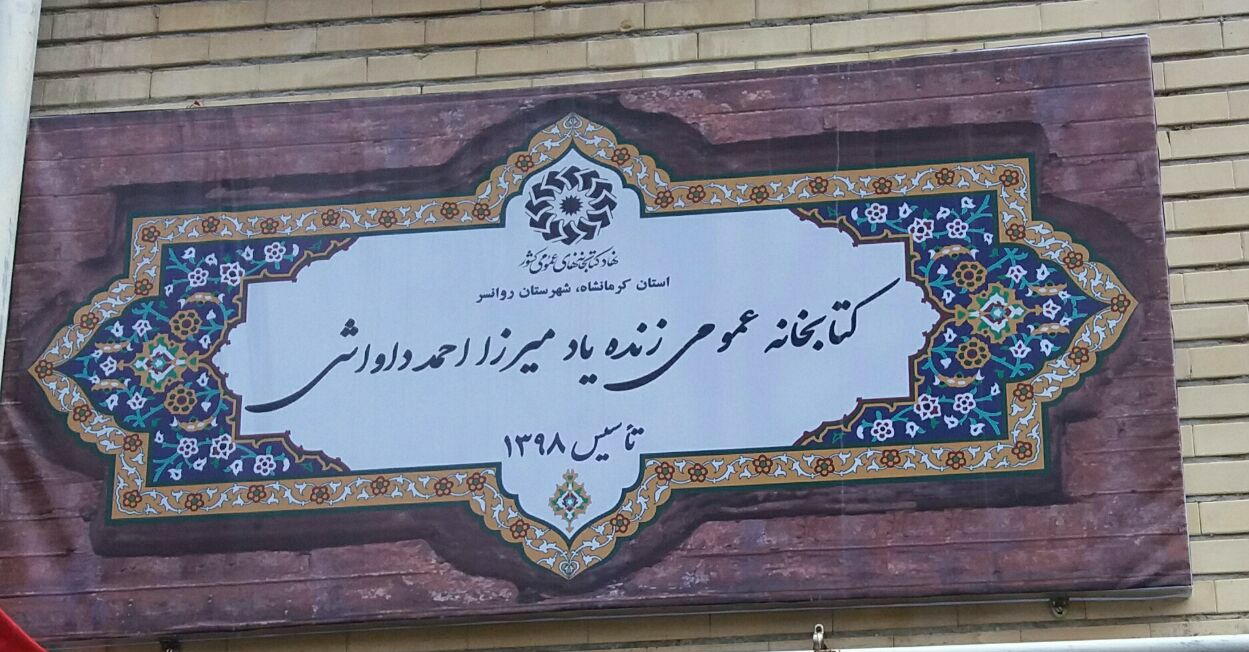 نهاد کتابخانه‌های عمومی کشور
استان کرمانشاه، شهرستان روانسر
کتابخانه عمومی زنده یاد میرزا احمد داواشی
تأسیس ۱۳۹۸